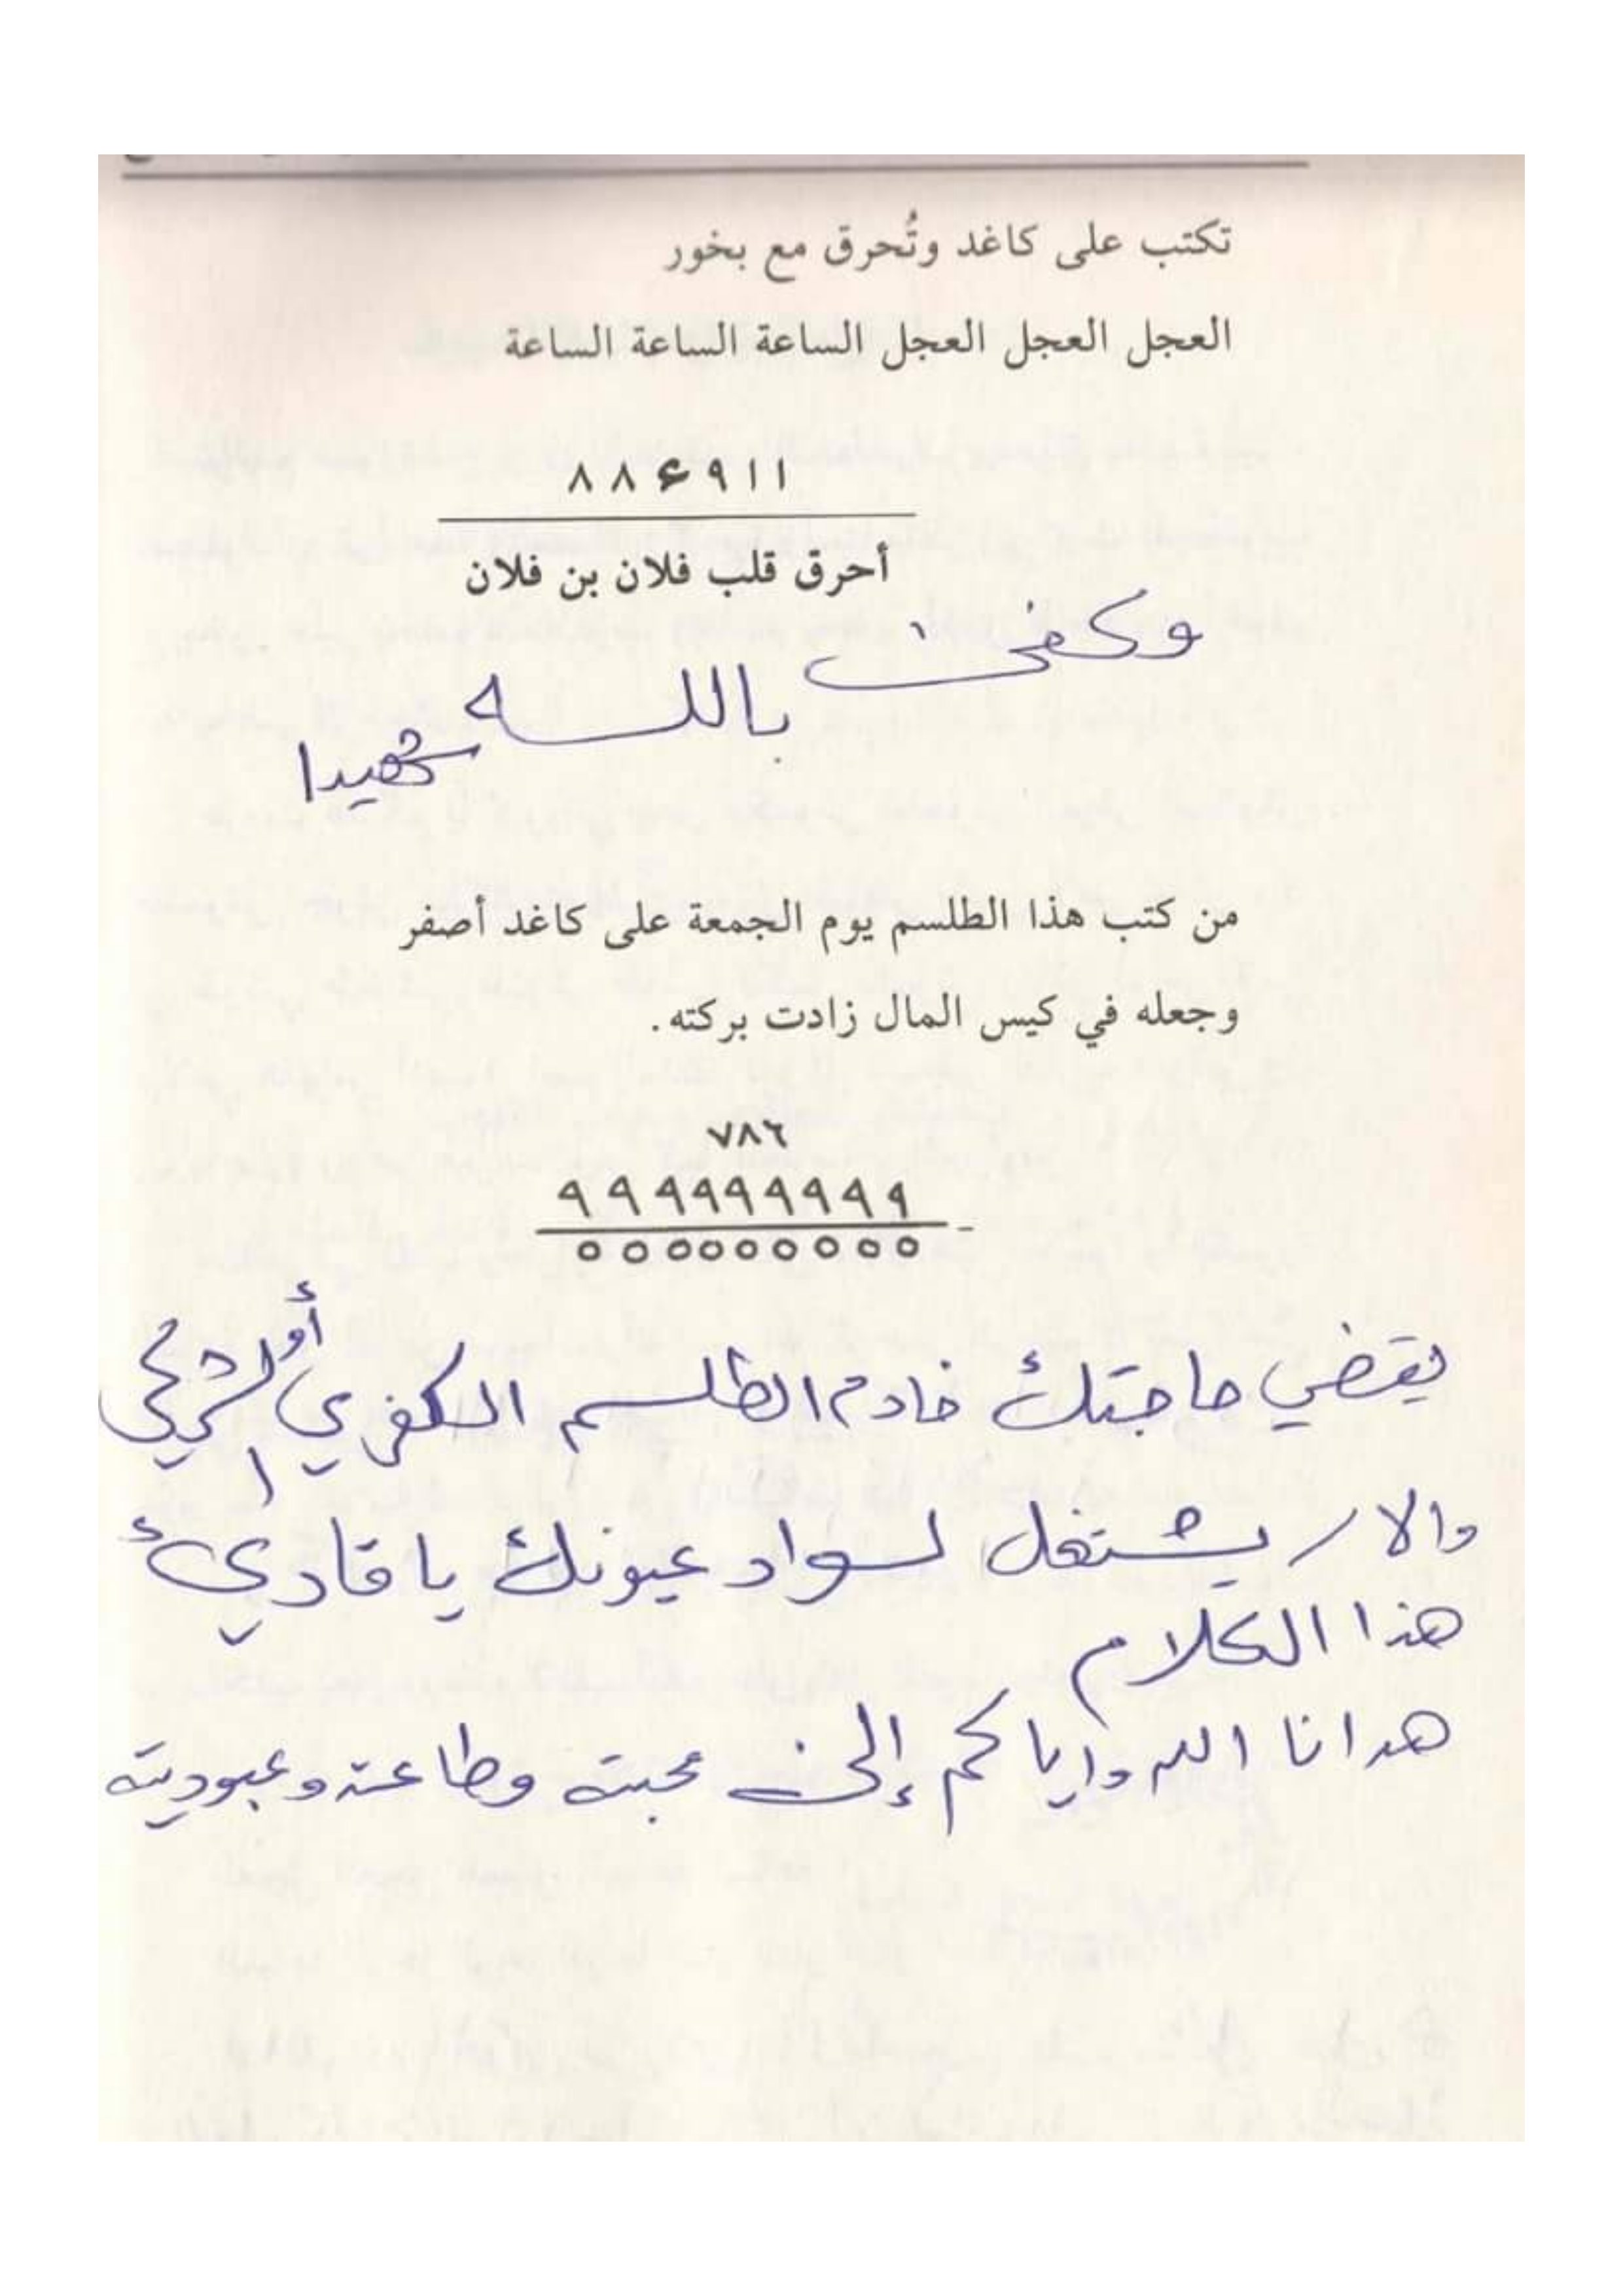 تكتب على كاغد وتُحرق مع بخور
العجل العجل العجل الساعة الساعة الساعة
٨ ٨ ۶ ٩ ١ ١
أحرق قلب فلان بن فلان
وكفى
بالله
شهيدا
من كتب هذا الطلسم يوم الجمعة على كاغد أصفر
وجعله في كيس المال زادت بركته.
٧٨٦
٩ ٩ ٩ ٩ ٩ ٩ ٩ ٩ ٩
٥ ٥ ٥ ٥ ٥ ٥ ٥ ٥ ٥
يقضي حاجتك خادم الطلسم الكفري أو الشركي
والا يشتغل لسواد عيونك يا قارئ
هذا الكلام
هدانا الله واياكم إلى محبته وطاعته وعبوديته